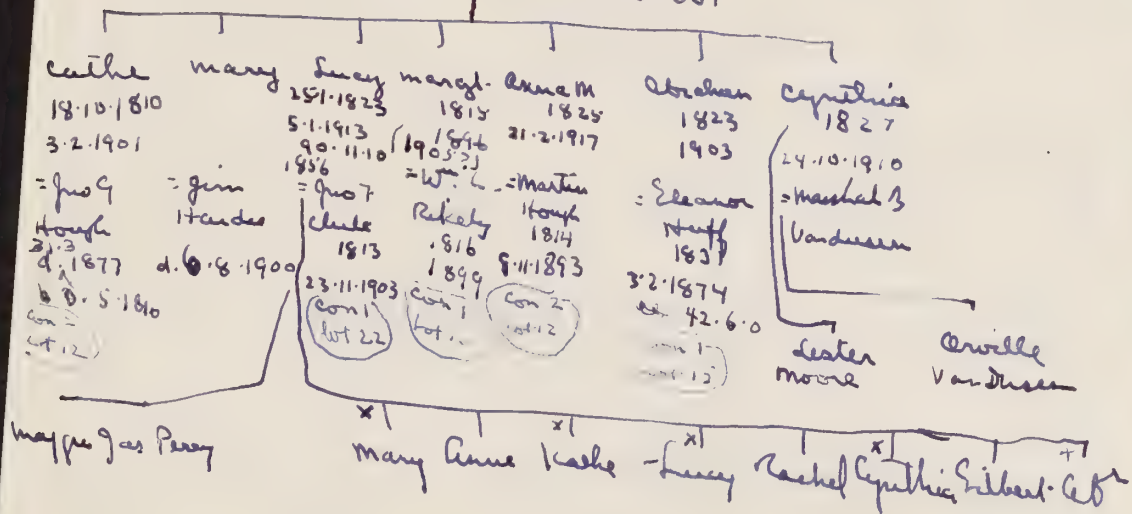 Cathe
18.10.1810
3.2.1901
= Jno G
Hough
31.3
d. 1877
b 8.5.1810
con 2
lot 12
Mary
= Jim
d. 6.8.1900
Lucy
25.1.1823
5.1.1913
90.11.10
1856
= Jno F
Clute
1813
23.11.1903
con 1
lot 22
Margt.
1815
1896
1905?
= Wm. L.
Rikely
1816
1899
con 1
lot
Anna M
1825
21.2.1917
= Martin
Hough
1814
9.11.1893
con 2
lot 12
Abraham
1823
1903
= Eleanor
Huff
1831
3.2.1874
42.6.0
con 1
lot 12
Cynthia
1827
24.10.1910
= Marshal B
Vandusen
Lester
Moore
Orville
VanDusen
Jas Perry
Mary Anne Kathe Lucy Rachel Cynthia Gilbert